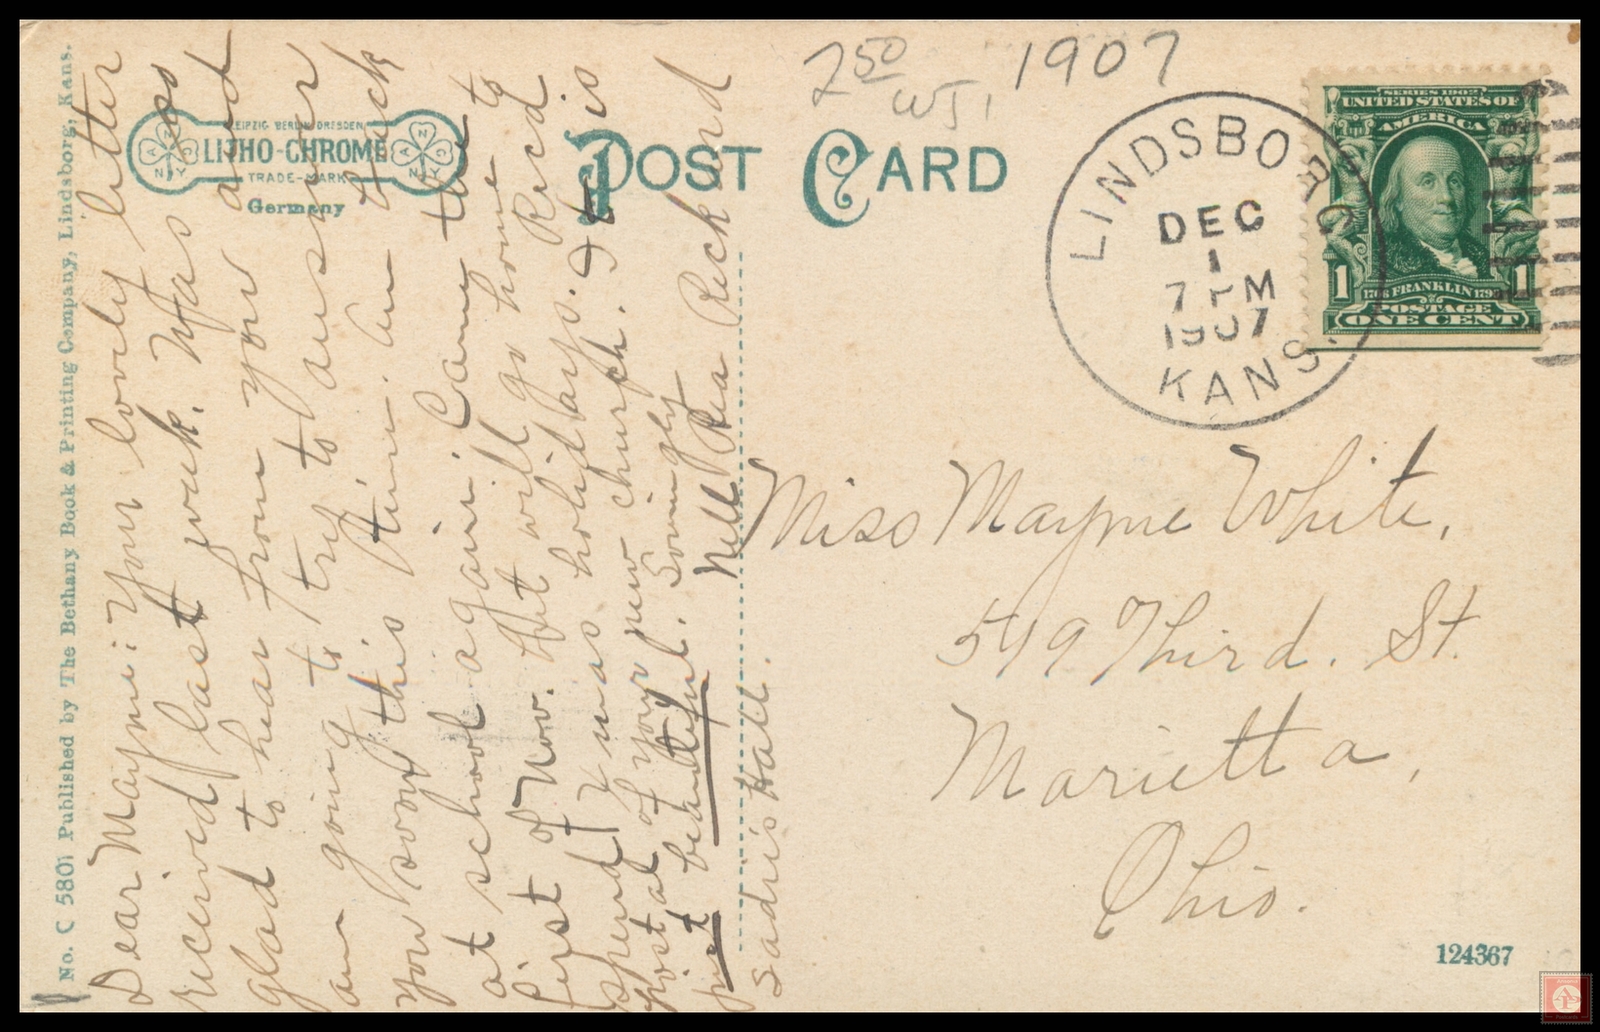 No. C 5801 Published by The Bethany Book & Printing Company, Lindsborg, Kans.
LEIPZIG BERLIN DRESDEN
LITHO-CHROME
TRADE-MARK
Germany
POST CARD
7 50
WJ, 1907
LINDSBORG
DEC
1
7 PM
1907
KANS.
SERIES 1902
UNITED STATES OF
AMERICA
1 1
FRANKLIN
POSTAGE
ONE CENT
Dear Mayme: Your lovely letter
received last week. Was so
glad to hear from your and
am going to try to answer
you soon this time. Am back
at school again. Came the
first of Nov. But will go home to
spend Xmas holidays. I Recd
postal of your new church. It is
just beautiful. Lovingly
Nell Rea Reckard
Sadie's Hall.
Miss Mayme White,
519 Third. St.
Marietta,
Ohio.
124367